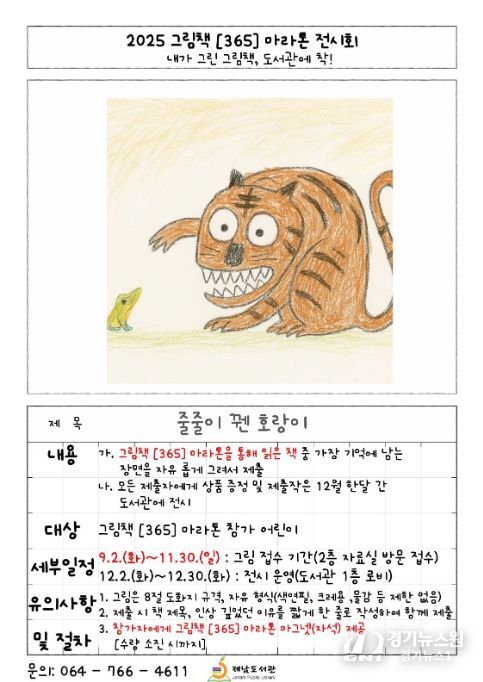 2025 그림책 [365] 마라톤 전시회
내가 그린 그림책, 도서관에 착!
제 목 줄줄이 꿴 호랑이
내용 가. 그림책 [365] 마라톤을 통해 읽은 책 중 가장 기억에 남는
장면을 자유 롭게 그려서 제출
나. 모든 제출자에게 상품 증정 및 제출작은 12월 한달 간
도서관에 전시
대상 그림책 [365] 마라톤 참가 어린이
세부일정 9.2.(화)~11.30.(일) : 그림 접수 기간(2층 자료실 방문 접수)
12.2.(화)~12.30.(화) : 전시 운영(도서관 1층 로비)
유의사항 1. 그림은 8절 도화지 규격, 자유 형식(색연필, 크레용 ,물감 등 제한 없음)
2. 제출 시 책 제목, 인상 깊었던 이유를 짧게 한 줄로 작성하여 함께 제출
및 절차 3. 참가자에게 그림책 [365] 마라톤 마그넷(자석) 제공
[수량 소진 시까지]
문의: 064 - 766 - 4611 제남도서관
Jenam Public Library
경기뉴스원
GN1 경기뉴스1